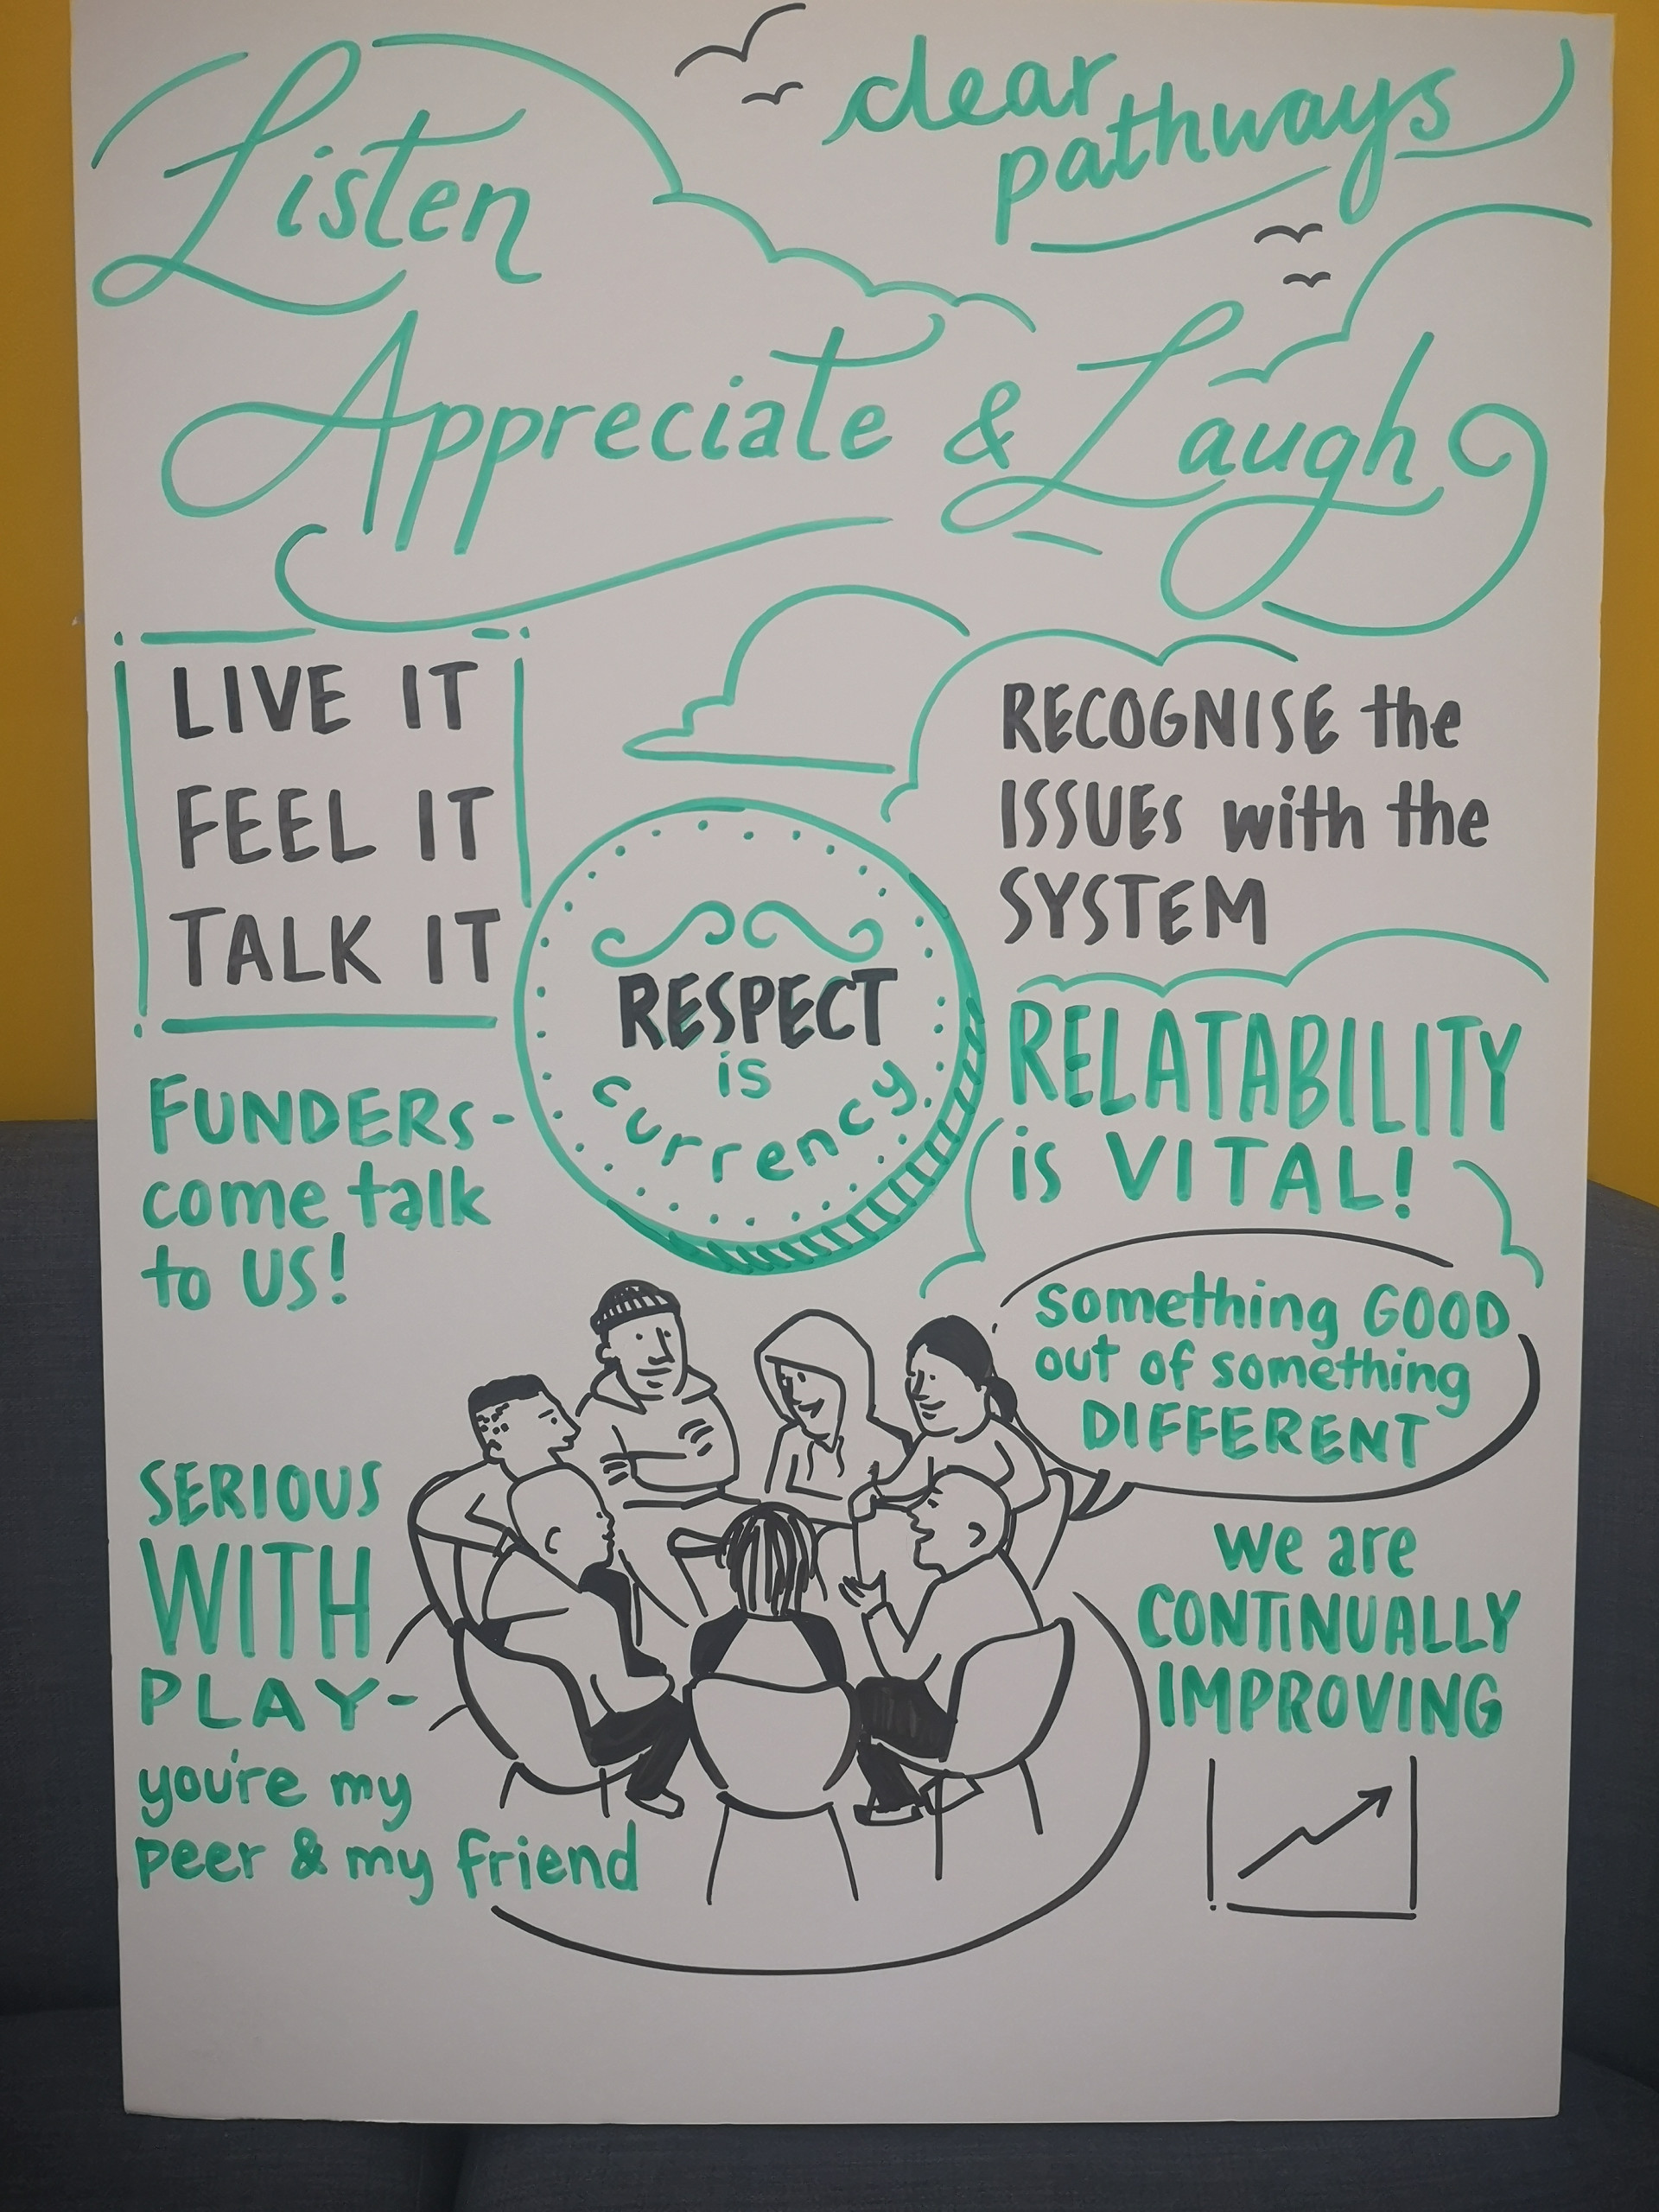 Listen
clear
pathways
Appreciate & Laugh
LIVE IT
FEEL IT
TALK IT
RECOGNISE the
ISSUES with the
SYSTEM
RESPECT
is
currency
RELATABILITY
is VITAL!
FUNDERS-
come talk
to US!
something GOOD
out of something
DIFFERENT
SERIOUS
WITH
PLAY-
you're my
peer & my friend
we are
CONTINUALLY
IMPROVING